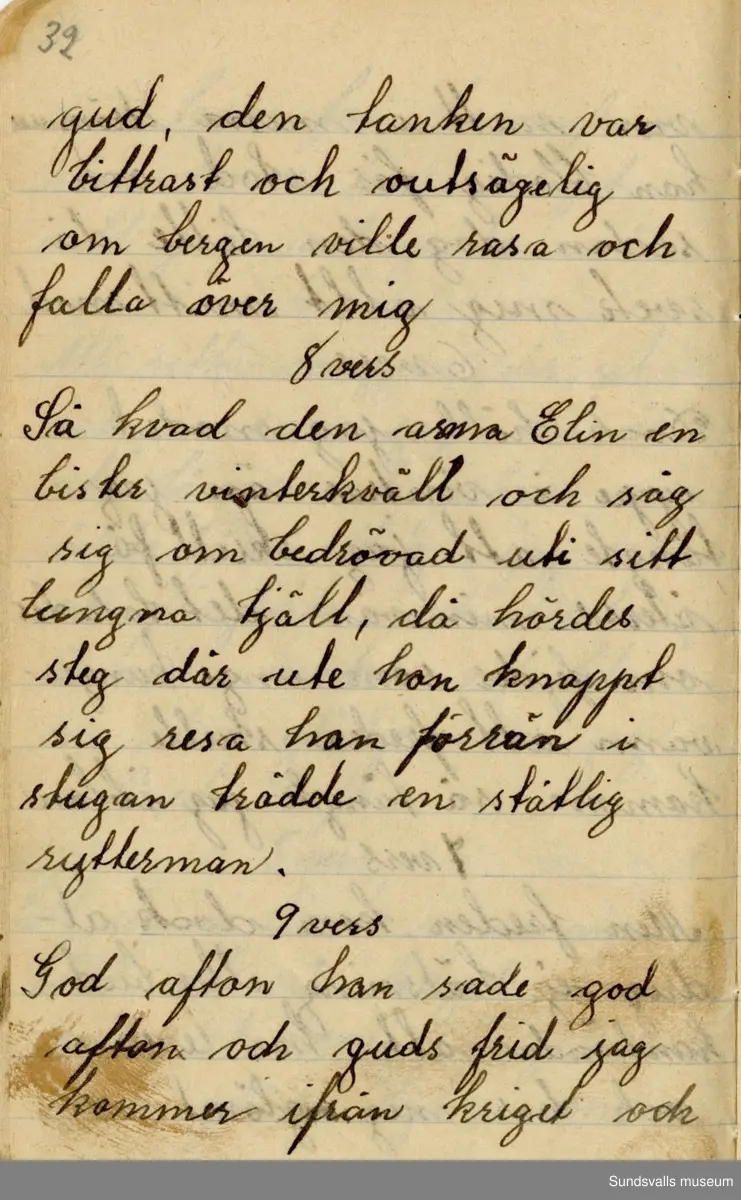 32
gud, den tanken var
bittrast och outsägelig
om bergen ville rasa och
falla över mig
8 vers
Så kvad den arma Elin en
bister vinterkväll och såg
sig om bedrövad uti sitt
tungna tjäll, då hördes
steg där ute hon knappt
sig resa han förrän i
stugan trädde en ståtlig
rytterman.
9 vers
God afton han sade god
afton och guds frid jag
kommer ifrån kriget och
Sundsvalls museum